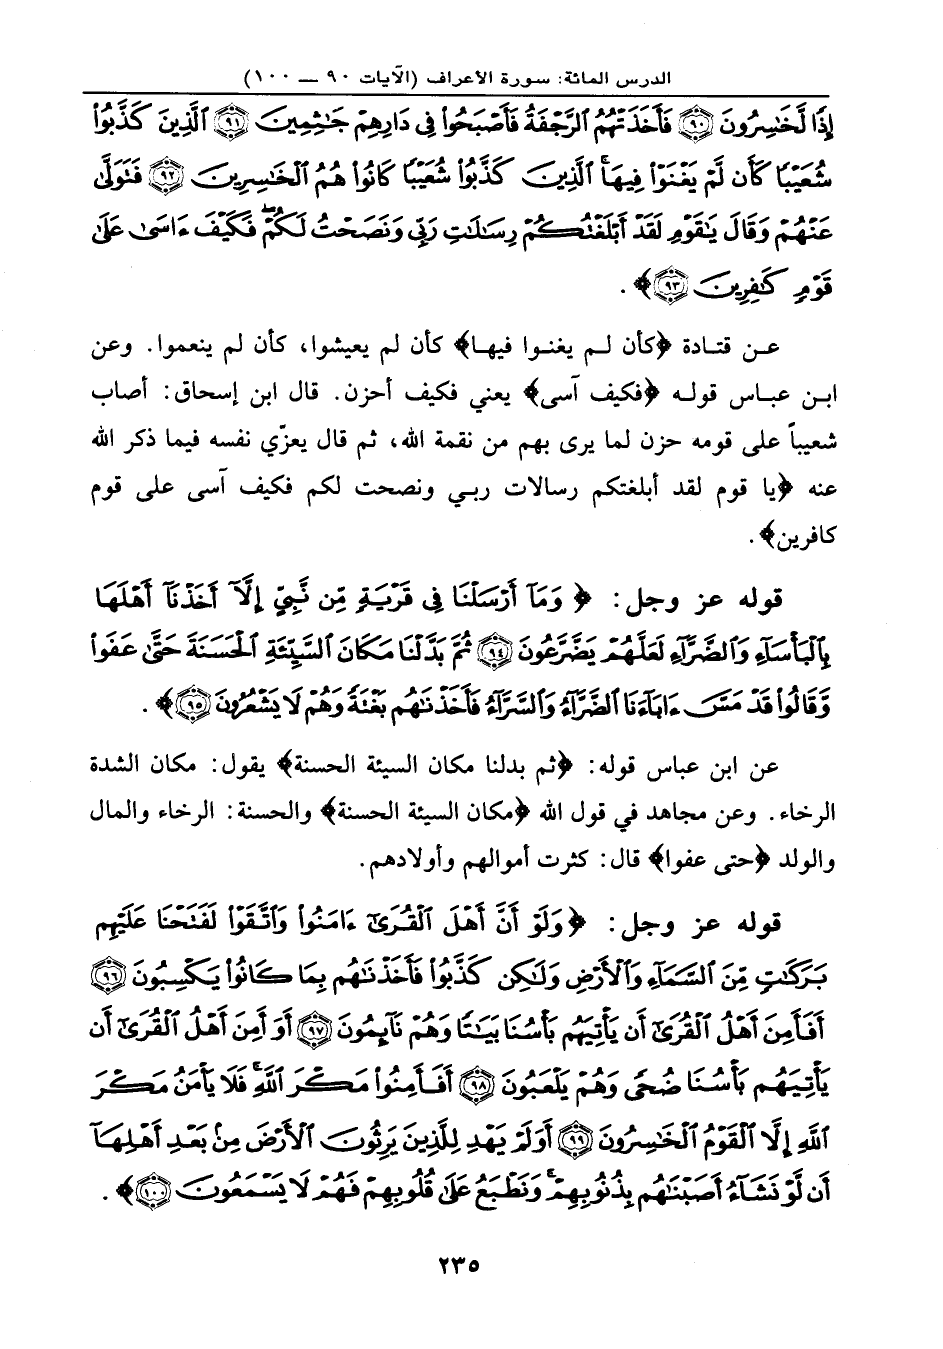 الدرس المائة: سورة الأعراف (الآيات ٩٠ — ١٠٠)
إِذًا لَّخَٰسِرُونَ ٩٠ فَأَخَذَتْهُمُ ٱلرَّجْفَةُ فَأَصْبَحُوا۟ فِى دَارِهِمْ جَٰثِمِينَ ٩١ ٱلَّذِينَ كَذَّبُوا۟
شُعَيْبًا كَأَن لَّمْ يَغْنَوْا۟ فِيهَا ۚ ٱلَّذِينَ كَذَّبُوا۟ شُعَيْبًا كَانُوا۟ هُمُ ٱلْخَٰسِرِينَ ٩٢ فَتَوَلَّىٰ
عَنْهُمْ وَقَالَ يَٰقَوْمِ لَقَدْ أَبْلَغْتُكُمْ رِسَٰلَٰتِ رَبِّى وَنَصَحْتُ لَكُمْ ۖ فَكَيْفَ ءَاسَىٰ عَلَىٰ
قَوْمٍ كَٰفِرِينَ ٩٣﴾.
عـن قتـادة ﴿كأن لـم يغنـوا فيهـا﴾ كأن لم يعيشوا، كأن لم ينعموا. وعن
ابـن عبـاس قولـه ﴿فكيف آسى﴾ يعني فكيف أحزن. قال ابن إسحاق: أصاب
شعيباً على قومه حزن لما يرى بهم من نقمة الله، ثم قال يعزّي نفسه فيما ذكر الله
عنه ﴿يا قوم لقد أبلغتكم رسالات ربـي ونصحت لكم فكيف آسى على قوم
كافرين﴾.
قوله عز وجل: ﴿ وَمَآ أَرْسَلْنَا فِى قَرْيَةٍ مِّن نَّبِىٍّ إِلَّآ أَخَذْنَآ أَهْلَهَا
بِٱلْبَأْسَآءِ وَٱلضَّرَّآءِ لَعَلَّهُمْ يَضَّرَّعُونَ ٩٤ ثُمَّ بَدَّلْنَا مَكَانَ ٱلسَّيِّئَةِ ٱلْحَسَنَةَ حَتَّىٰ عَفَوا۟
وَّقَالُوا۟ قَدْ مَسَّ ءَابَآءَنَا ٱلضَّرَّآءُ وَٱلسَّرَّآءُ فَأَخَذْنَٰهُم بَغْتَةً وَهُمْ لَا يَشْعُرُونَ ٩٥﴾.
عن ابن عباس قوله: ﴿ثم بدلنا مكان السيئة الحسنة﴾ يقول: مكان الشدة
الرخاء. وعن مجاهد في قول الله ﴿مكان السيئة الحسنة﴾ والحسنة: الرخاء والمال
والولد ﴿حتى عفوا﴾ قال: كثرت أموالهم وأولادهم.
قوله عز وجل: ﴿وَلَوْ أَنَّ أَهْلَ ٱلْقُرَىٰٓ ءَامَنُوا۟ وَٱتَّقَوْا۟ لَفَتَحْنَا عَلَيْهِم
بَرَكَٰتٍ مِّنَ ٱلسَّمَآءِ وَٱلْأَرْضِ وَلَٰكِن كَذَّبُوا۟ فَأَخَذْنَٰهُم بِمَا كَانُوا۟ يَكْسِبُونَ ٩٦
أَفَأَمِنَ أَهْلُ ٱلْقُرَىٰٓ أَن يَأْتِيَهُم بَأْسُنَا بَيَٰتًا وَهُمْ نَآئِمُونَ ٩٧ أَوَ أَمِنَ أَهْلُ ٱلْقُرَىٰٓ أَن
يَأْتِيَهُم بَأْسُنَا ضُحًى وَهُمْ يَلْعَبُونَ ٩٨ أَفَأَمِنُوا۟ مَكْرَ ٱللَّهِ ۚ فَلَا يَأْمَنُ مَكْرَ
ٱللَّهِ إِلَّا ٱلْقَوْمُ ٱلْخَٰسِرُونَ ٩٩ أَوَلَمْ يَهْدِ لِلَّذِينَ يَرِثُونَ ٱلْأَرْضَ مِنۢ بَعْدِ أَهْلِهَآ
أَن لَّوْ نَشَآءُ أَصَبْنَٰهُم بِذُنُوبِهِمْ ۚ وَنَطْبَعُ عَلَىٰ قُلُوبِهِمْ فَهُمْ لَا يَسْمَعُونَ ١٠٠﴾.
٢٣٥